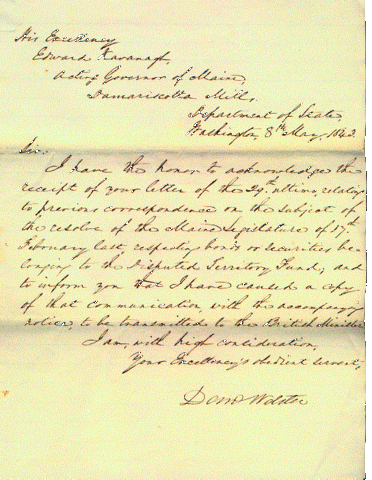 His Excellency
Edward Kavanagh,
Acting Governor of Maine,
Damariscotta Mills,
Department of State,
Washington, 8th May, 1843.
Sir:
I have the honor to acknowledge the
receipt of your letter of the 29th ultimo, relating
to previous correspondence on the subject of
the resolve of the Maine Legislature of 17th
February last respecting bonds or securities be-
longing to the Disputed Territory Fund; and
to inform you that I have caused a copy
of that communication with the accompanying
notice to be transmitted to the British Minister.
I am, with high consideration,
Your Excellency's obedient servant,
Danl Webster